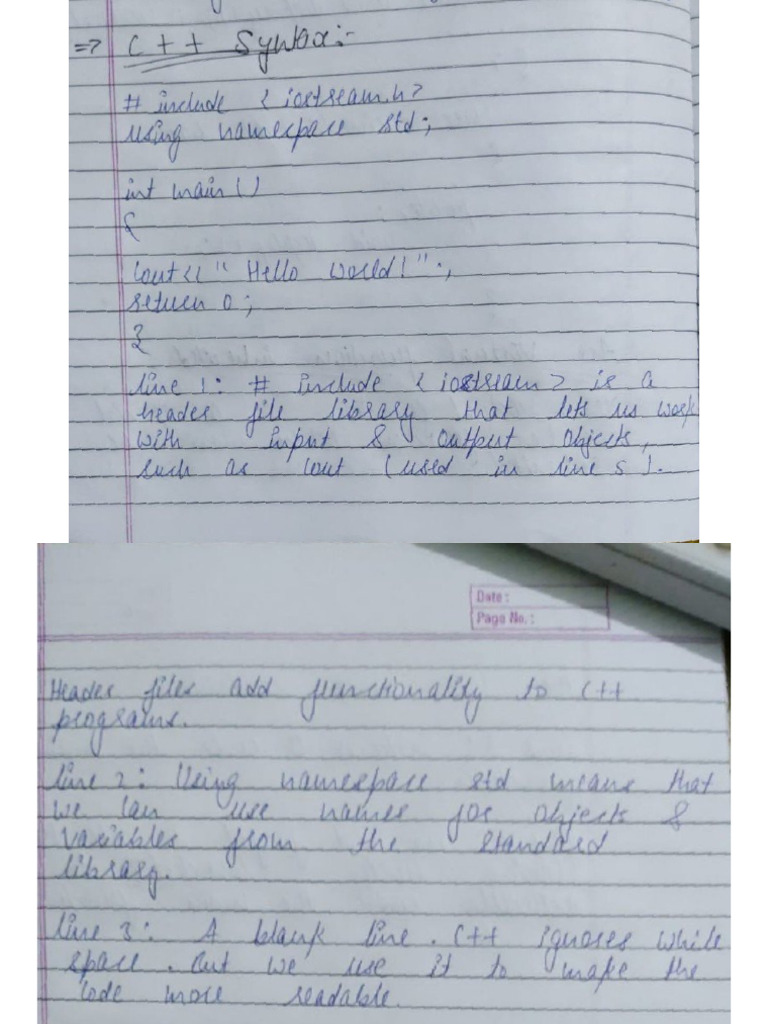 => C++ Syntax:-
# include <iostream.h>
using namespace std;
int main()
{
cout<< "Hello world!";
return 0;
}
line 1: # include <iostream> is a
header file library that lets us work
with input & output objects,
such as cout (used in line 5).
Date :
Page No. :
Header files add functionality to C++
programs.
line 2: Using namespace std means that
we can use names for objects &
variables from the standard
library.
line 3: A blank line. C++ ignores while
space. But we use it to make the
code more readable.